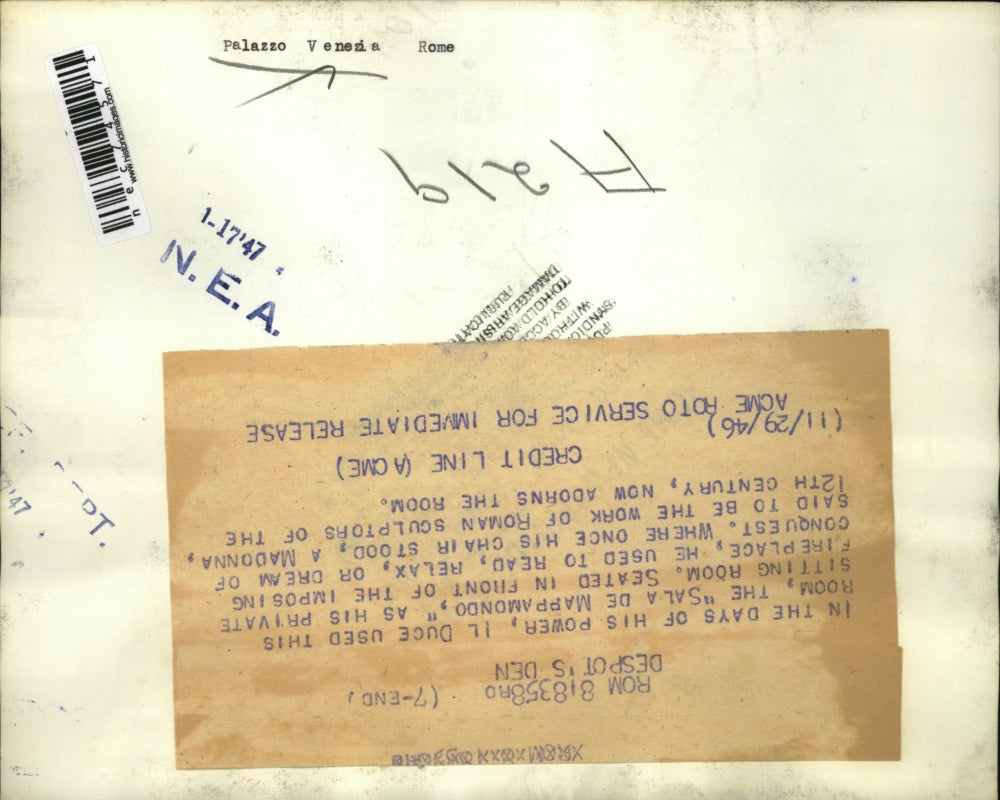 Palazzo Venezia Rome
www.historicimages.com
A 219
1-17'47
N.E.A.
ROM 818358RO (7-END)
DESPOT'S DEN
IN THE DAYS OF HIS POWER, IL DUCE USED THIS
ROOM, THE "SALA DE MAPPAMONDO," AS HIS PRIVATE
SITTING ROOM. SEATED IN FRONT OF THE IMPOSING
FIREPLACE, HE USED TO READ, RELAX, OR DREAM OF
CONQUEST. WHERE ONCE HIS CHAIR STOOD, A MADONNA,
SAID TO BE THE WORK OF ROMAN SCULPTORS OF THE
12TH CENTURY, NOW ADORNS THE ROOM.
CREDIT LINE (ACME)
(11/29/46)
ACME ROTO SERVICE FOR IMMEDIATE RELEASE